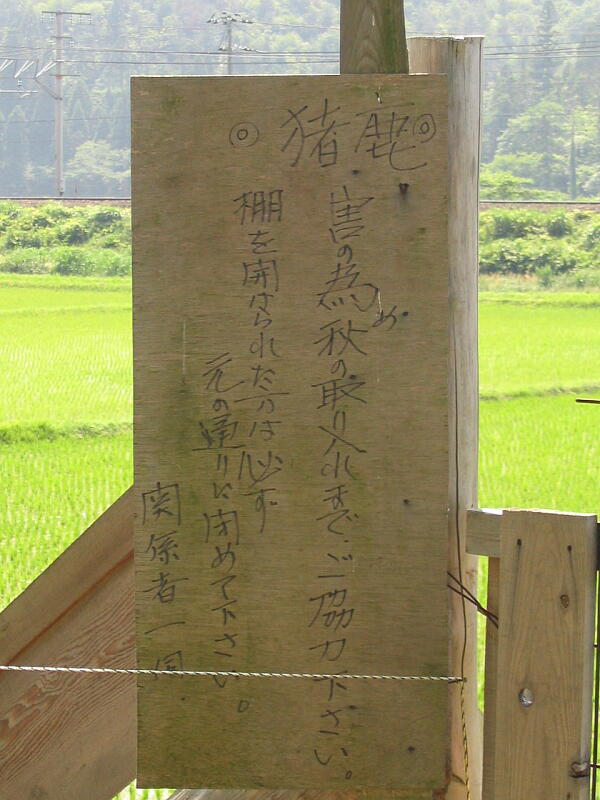 ◎ 猪鹿◎
害の為め秋の取り入れまで、ご協力下さい。
棚を開けられた方は必ず
元の通りに閉めて下さい。
関係者一同